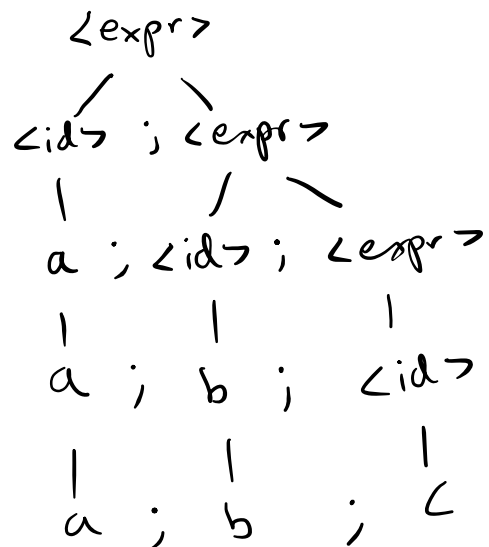 <expr>
<id> ; <expr>
a ; <id> ; <expr>
a ; b ; <id>
a ; b ; c